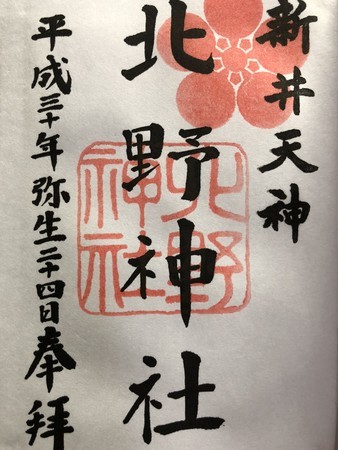 新井天神
北野神社
平成三十年弥生二十四日奉拝
北野
神社